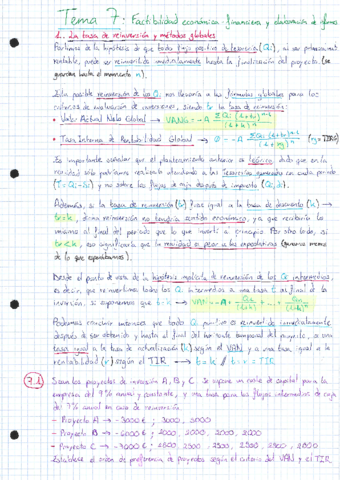 Tema 7: Factibilidad económica-financiera y elaboración de planes
1. La tasa de reinversión y métodos globales
Partimos de la hipótesis de que todo flujo positivo de tesorería (Qi), al ser potencialmente
rentable, puede ser reinvertido inmediatamente hasta la finalización del proyecto. (se
guardan hasta el momento n).
Esta posible reinversión de los Qi nos llevaría a las fórmulas globales para los
criterios de evaluación de inversiones, siendo tr la tasa de reinversión:
• Valor Actual Neto Global → VANG = -A
• Tasa Interna de Rentabilidad Global → 0 = -A
Es importante señalar que el planteamiento anterior es teórico, dado que en la
realidad solo podríamos realizarlo atendiendo a las tesorerías generadas en cada período
y no sobre los flujos de caja después de impuesto
Además, si la tasa de reinversión (tr) fuese igual a la tasa de descuento (k) →
tr = k, dicha reinversión no tendría sentido económico, ya que recibiría lo
mismo al final del período que lo que invertí a principio. Por otro lado, si
tr < k, eso significaría que la realidad es peor a las expectativas (ganamos menos
de lo que esperábamos).
Desde el punto de vista de la hipótesis implícita de reinversión de los Qi intermedios,
es decir, que reinvertimos todos los Qi intermedios a una tasa t al final de la
inversión, si suponemos que t = k → VAN = -A +
Podemos concluir entonces que todo Qi positivo es reinvertido inmediatamente
después de ser obtenido y hasta el final del horizonte temporal del proyecto, a una
tasa igual a la tasa de actualización (k) según el VAN y a una tasa igual a la
rentabilidad (r) según el TIR → t = k // t = r = TIR
7.1 Sean los proyectos de inversión A, B y C. Se supone un coste de capital para la
empresa del 9% anual y constante, y una tasa para los flujos intermedios de caja
del 7% anual en caso de reinversión.
- Proyecto A → -3000 € ; 3000, 3000
- Proyecto B → -6000 € ; 2000, 2000, 3000, 2000
- Proyecto C → -7000 € ; 1000, 1500, 2500, 2500, 2500, 2000
Establece el orden de preferencia de proyectos según el criterio del VAN y el TIR.